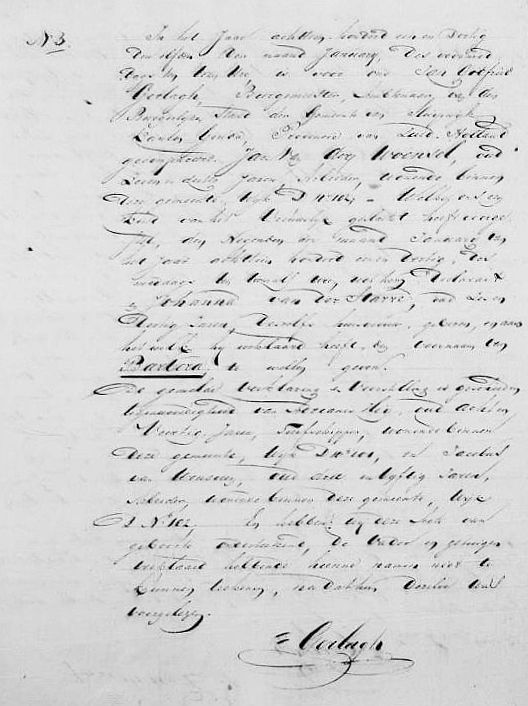 N 3.
In het Jaar achttien honderd een en dertig
den elfden der maand January, des voormid
dags ten tien Ure, is voor ons Jan Godfried
Burgemeester, Ambtenaar van den
Burgerlijken Stand der Gemeente van
Kanton Gouda, Provincie van Zuid-Holland
gecompareerd Jan van der Woensel, oud
Zeven en dertig Jaren, Arbeider, wonende binnen
deze gemeente, Wijk D N 102, Welke ons een
Kind van het Vrouwelijk geslacht heeft
den Negenden der maand January van
het jaar achttien honderd een en dertig, des
middags ten twaalf ure, van hem Declarant
en Johanna van der Starre, oud Zes en
dertig Jaren, deszelfs huisvrouw, geboren, en aan
het welk hij verklaard heeft den voornaam van
Barbera te willen geven.
De gemelde Verklaring en Voorstelling is geschied in
tegenwoordigheid van oud acht en
Veertig Jaren, wonende binnen
deze gemeente, Wijk D N 101, en Jacobus
van oud drie en vijftig Jaren,
arbeider, wonende binnen deze gemeente, Wijk
D N 102. En hebben wij deze Acte van
geboorte onderteekend, de Vader en getuigen
verklaard hebbende hunne namen niet te
kunnen teekenen, na dat hun dezelve was
voorgelezen.